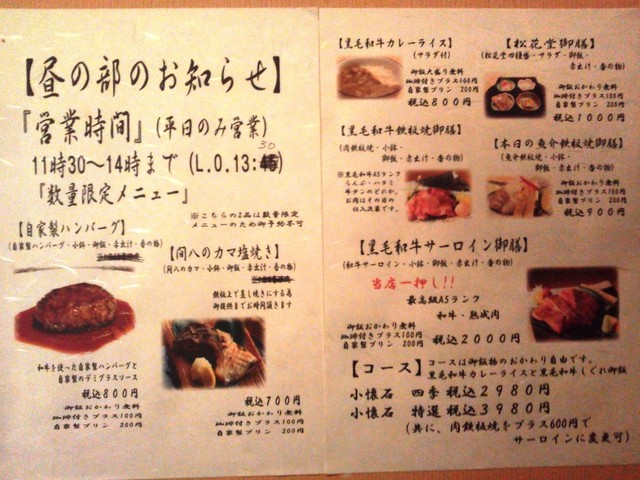 【昼の部のお知らせ】
『営業時間』(平日のみ営業)
30
11時30～14時まで (L.O.13:45)
『数量限定メニュー』
※こちらの2品は数量限定
メニューのため御予約不可
【自家製ハンバーグ】
(自家製ハンバーグ・小鉢・御飯・赤出汁・香の物)
和牛を使った自家製ハンバーグと
自家製のデミグラスソース
税込800円
御飯おかわり無料
珈琲付きプラス100円
自家製プリン 200円
【間八のカマ塩焼き】
(間八のカマ・小鉢・御飯・赤出汁・香の物)
鉄板上で蒸し焼きにする為
御提供までお時間頂きます
税込700円
御飯おかわり無料
珈琲付きプラス100円
自家製プリン 200円
【黒毛和牛カレーライス】
(サラダ付)
御飯大盛り無料
珈琲付きプラス100円
自家製プリン 200円
税込800円
【松花堂御膳】
(松花堂四種盛・サラダ・御飯・
赤出汁・香の物)
御飯おかわり無料
珈琲付きプラス100円
自家製プリン 200円
税込1000円
【黒毛和牛鉄板焼御膳】
(肉鉄板焼・小鉢・
御飯・赤出汁・香の物)
※黒毛和牛A5ランク
らんぷ・ハタミ
牛タンのどれか。
お肉はその日の
仕入次第です。
【本日の魚介鉄板焼御膳】
(魚介鉄板焼・小鉢・
御飯・赤出汁・香の物)
御飯おかわり無料
珈琲付きプラス100円
自家製プリン 200円
税込900円
【黒毛和牛サーロイン御膳】
(和牛サーロイン・小鉢・御飯・赤出汁・香の物)
当店一押し!!
最高級A5ランク
和牛・熟成肉
御飯おかわり無料
珈琲付きプラス100円
自家製プリン 200円
税込2000円
【コース】
コースは御飯物のおかわり自由です。
黒毛和牛カレーライスと黒毛和牛しぐれ御飯
小懐石 四季 税込2980円
小懐石 特選 税込3980円
(共に、肉鉄板焼をプラス600円で
サーロインに変更可)